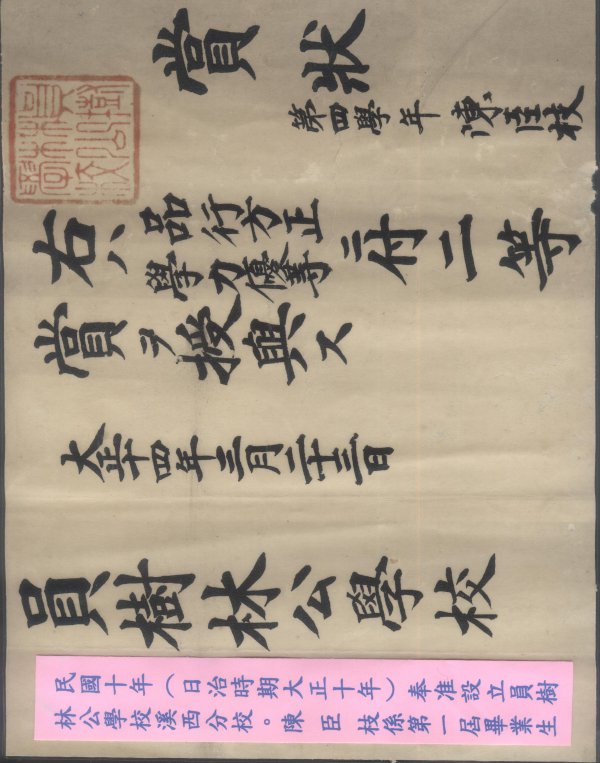 賞狀
第四學年 陳臣枝
右ハ 品行方正
學力優等 ニ付二等
賞ヲ授與ス
大正十四年三月二十三日
員樹林公學校
民國十年(日治時期大正十年)奉准設立員樹
林公學校溪西分校。陳臣枝係第一屆畢業生